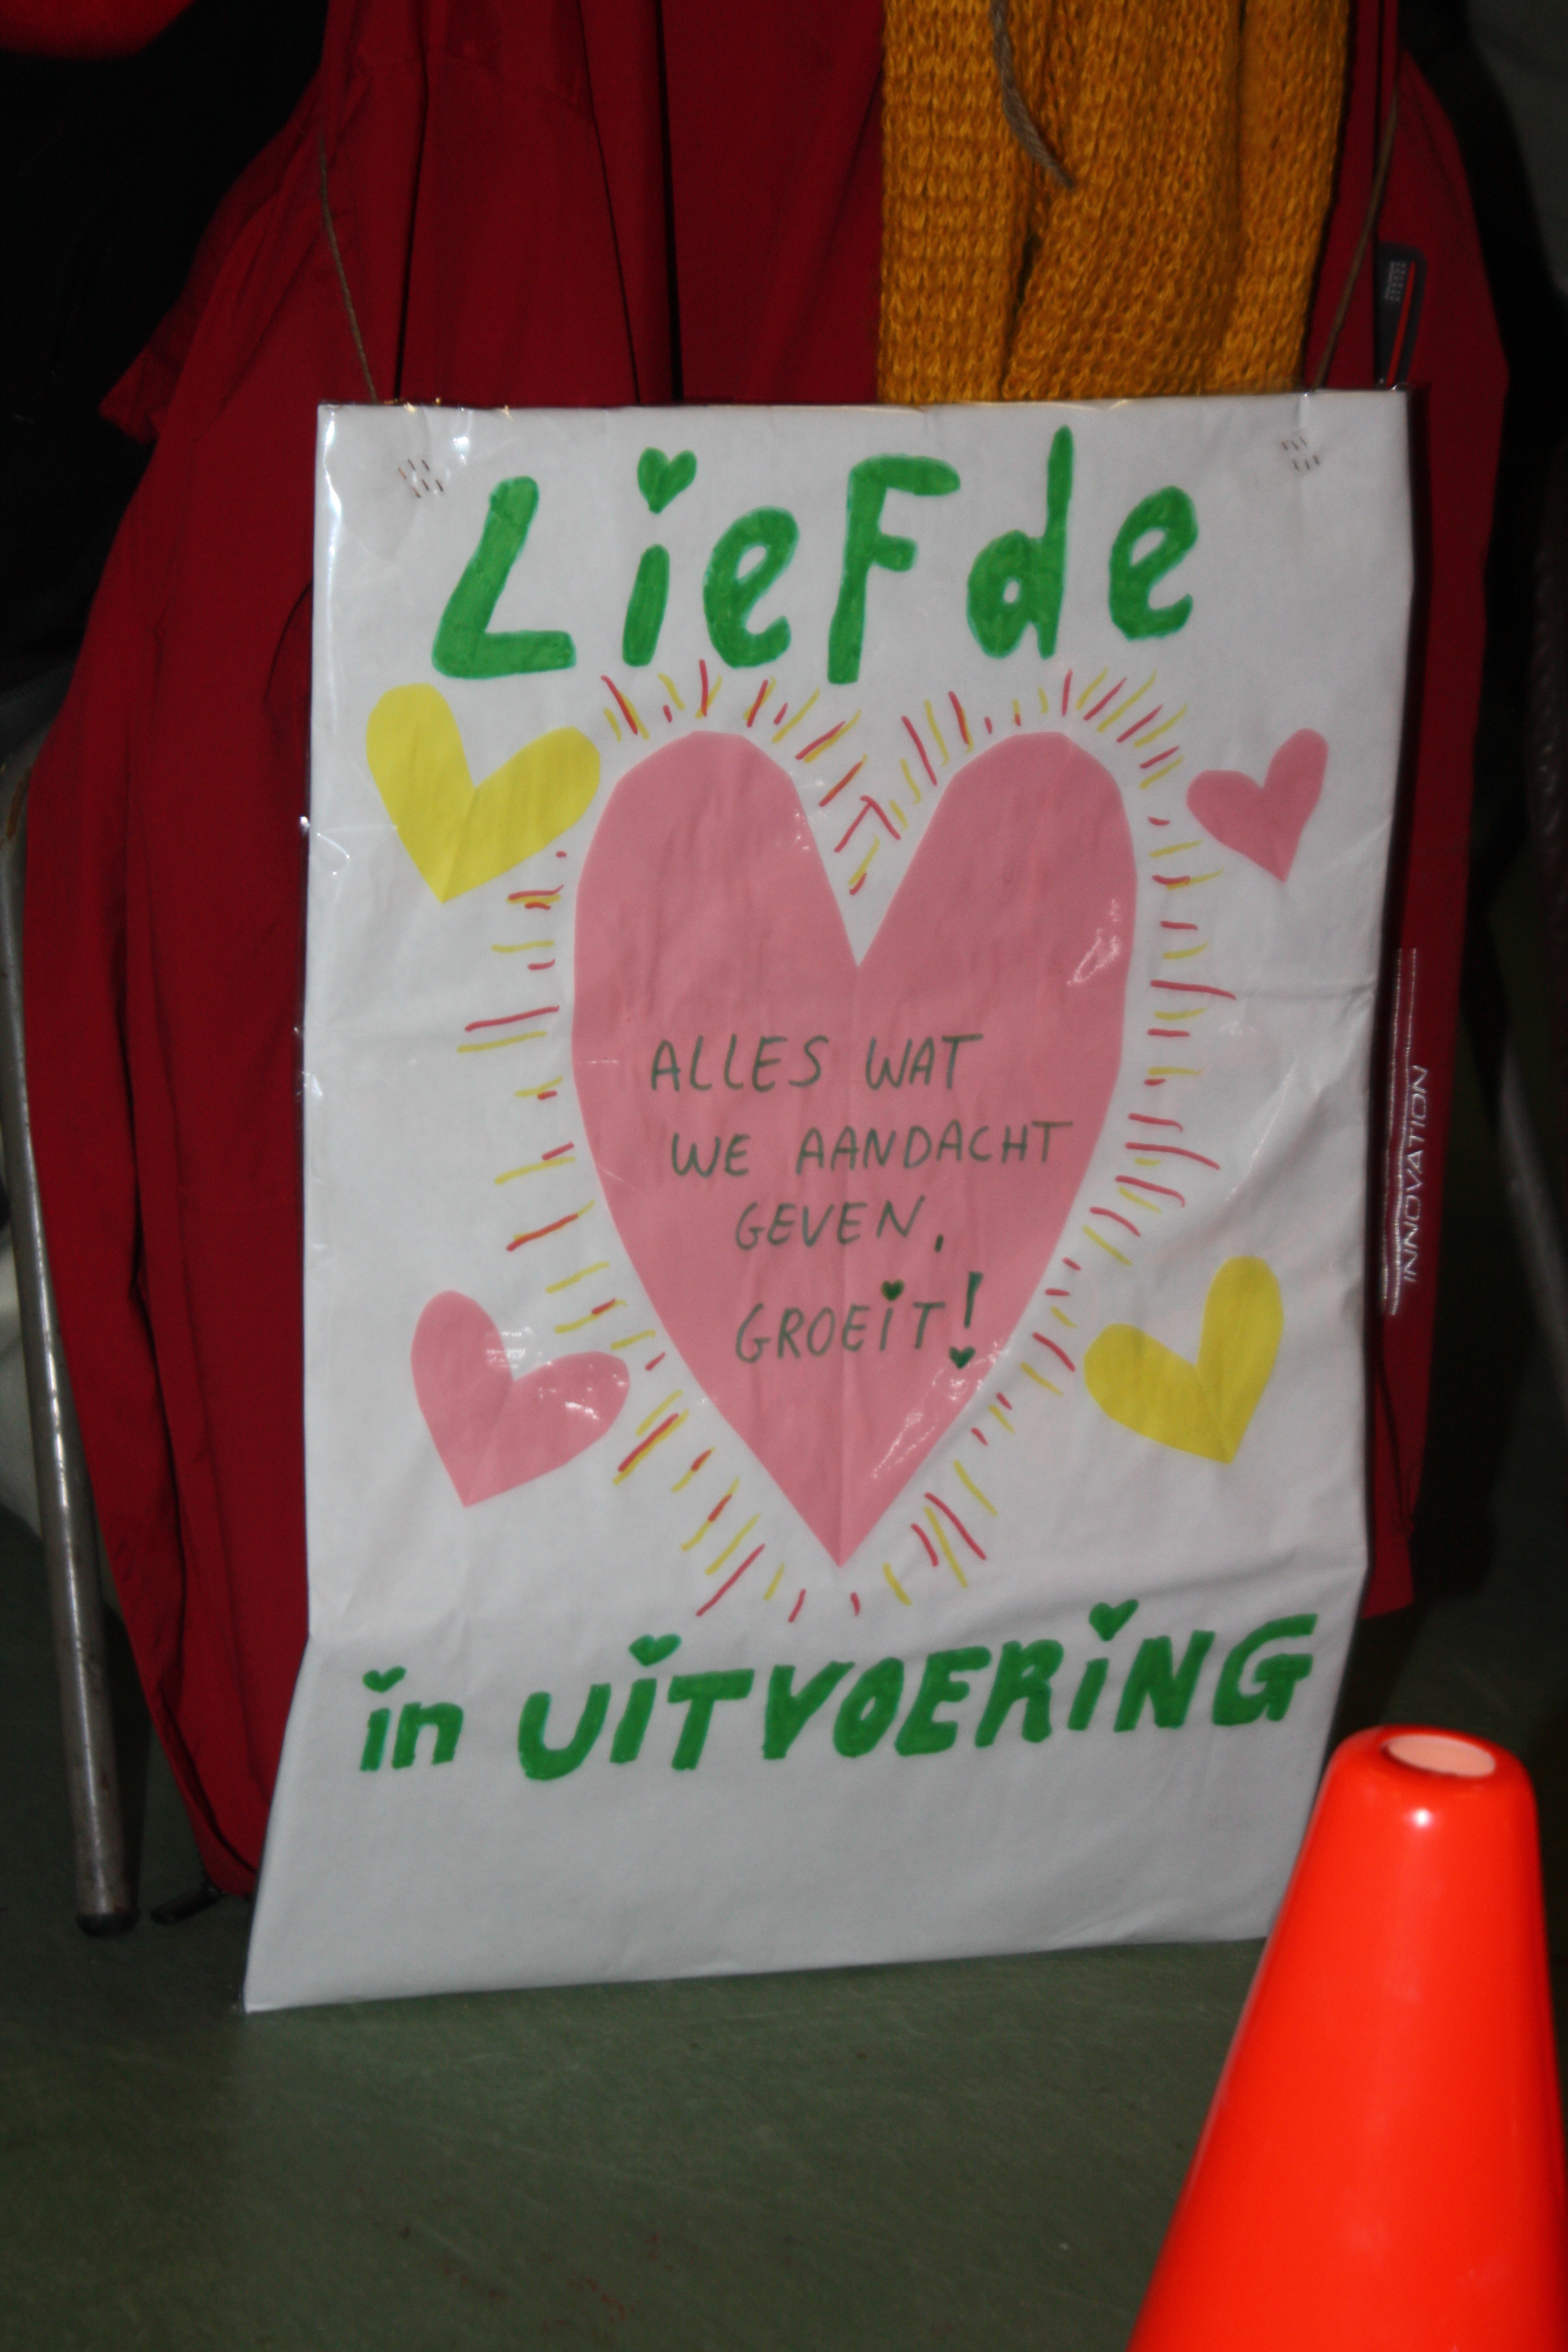 LieFde
ALLES WAT
WE AANDACHT
GEVEN,
GROEiT!
in UiTVOERiNG
INNOVATION